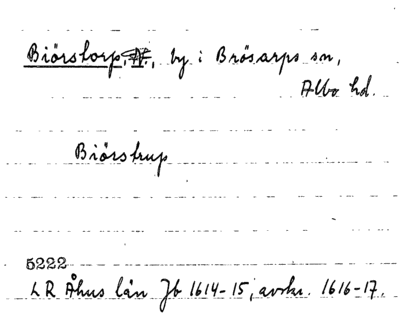 Biörstorp, by i Brösarps sn,
Albo hd.
Biörstrup
5222
LR Åhus län Jb 1614-15; avskr. 1616-17.